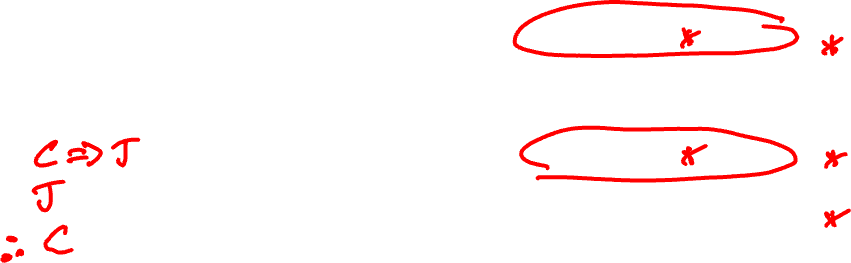 *
*
C ⇒ J
*
*
J
*
∴ C